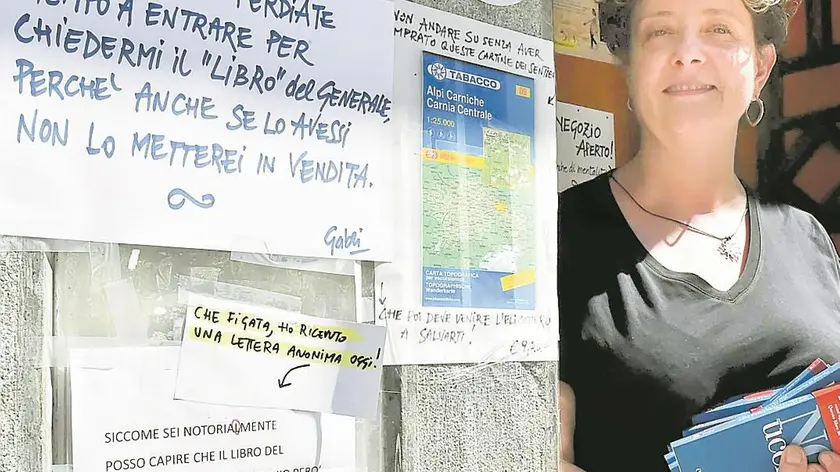 PERDIATE
A ENTRARE PER
CHIEDERMI IL "LIBRO" del GENERALE,
PERCHÈ ANCHE SE LO AVESSI
NON LO METTEREI IN VENDITA.
Gabri
NON ANDARE SU SENZA AVER
COMPRATO QUESTE CARTINE DEI SENTIERI
TABACCO
09
Alpi Carniche
Carnia Centrale
1:25.000
CARTA TOPOGRAFICA
TOPOGRAPHISCHE
Wanderkarte
CHE POI DEVE VENIRE L'ELICOTTERO
A SALVARTI!
NEGOZIO
APERTO!
CHE FIGATA, HO RICEVUTO
UNA LETTERA ANONIMA OGGI!
SICCOME SEI NOTORIAMENTE
POSSO CAPIRE CHE IL LIBRO DEL
PERO'